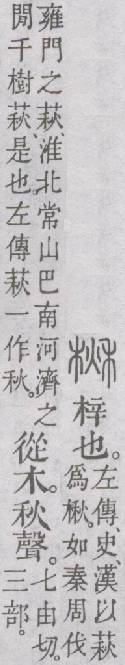 楸
梓也。
左傳、史、漢以萩
爲楸。如秦周伐
雍門之萩、淮北常山巴南河濟之
閒千樹萩是也。左傳萩一作秋。
從木。秋聲。
七由切。
三部。